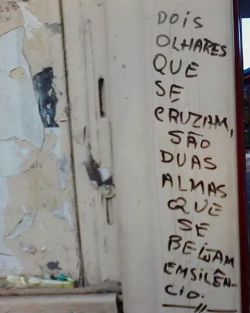 DOIS
OLHARES
QUE
SE
CRUZAM,
SÃO
DUAS
ALMAS
QUE
SE
BEIJAM
EM SILÊN-
CIO.